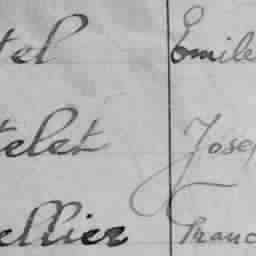 tel Emile
telet Jose
ellier Franc